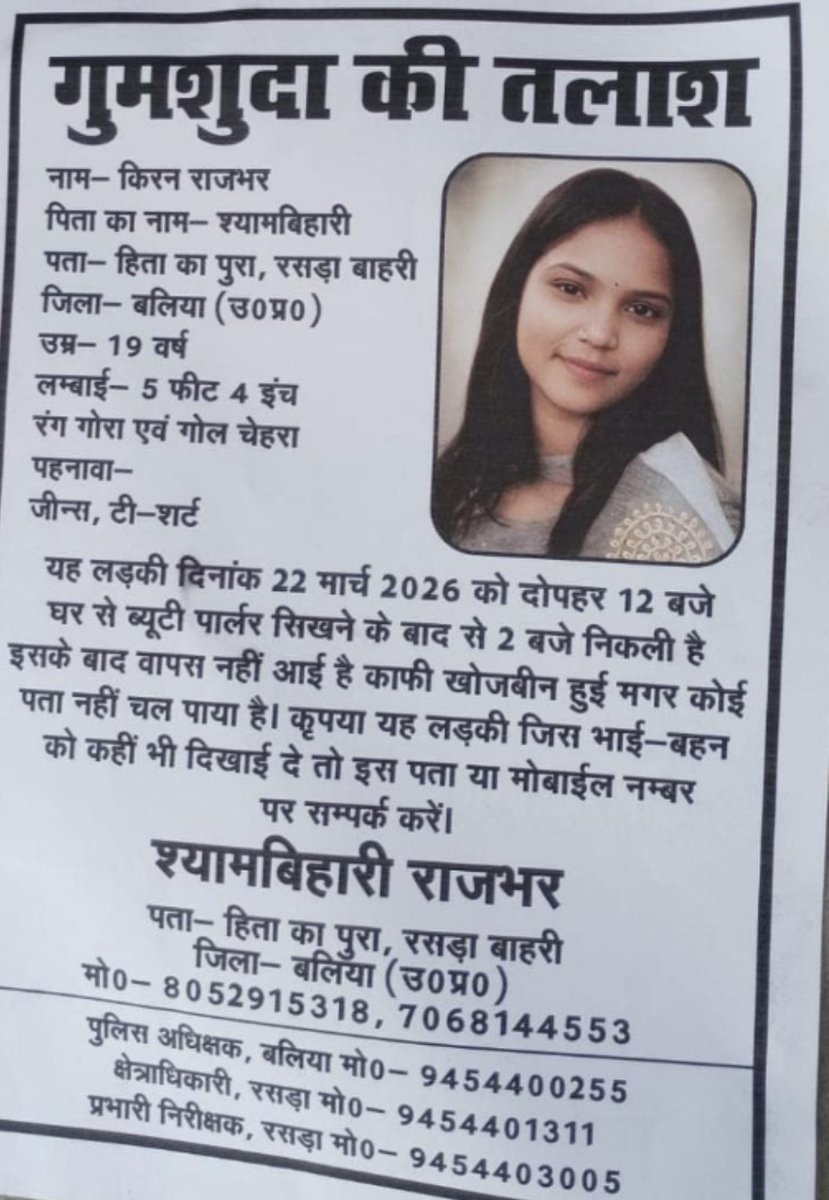 गुमशुदा की तलाश
नाम– किरन राजभर
पिता का नाम– श्यामबिहारी
पता– हिता का पुरा, रसड़ा बाहरी
जिला– बलिया (उ0प्र0)
उम्र– 19 वर्ष
लम्बाई– 5 फीट 4 इंच
रंग गोरा एवं गोल चेहरा
पहनावा–
जीन्स, टी–शर्ट
यह लड़की दिनांक 22 मार्च 2026 को दोपहर 12 बजे
घर से ब्यूटी पार्लर सिखने के बाद से 2 बजे निकली है
इसके बाद वापस नहीं आई है काफी खोजबीन हुई मगर कोई
पता नहीं चल पाया है। कृपया यह लड़की जिस भाई–बहन
को कहीं भी दिखाई दे तो इस पता या मोबाईल नम्बर
पर सम्पर्क करें।
श्यामबिहारी राजभर
पता– हिता का पुरा, रसड़ा बाहरी
जिला– बलिया (उ0प्र0)
मो0– 8052915318, 7068144553
पुलिस अधिक्षक, बलिया मो0– 9454400255
क्षेत्राधिकारी, रसड़ा मो0– 9454401311
प्रभारी निरीक्षक, रसड़ा मो0– 9454403005